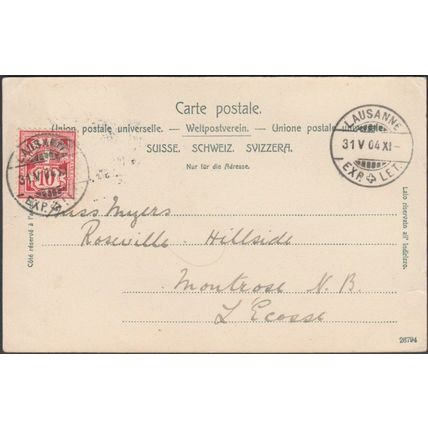 Carte postale.
Union postale universelle. — Weltpostverein. — Unione postale universale.
SUISSE. SCHWEIZ. SVIZZERA.
Nur für die Adresse.
LAUSANNE
31 V 04 XI -
EXP. LET.
LAUSANNE
31 V
EXP.
10
Côté réservé à l'a
Lato riservato all' indirizzo.
Miss Myers
Roseville Hillside
Montrose N. B
L'Ecosse
26794